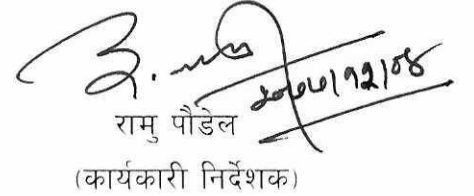 २०७७/१२/०४
रामु पौडेल
(कार्यकारी निर्देशक)